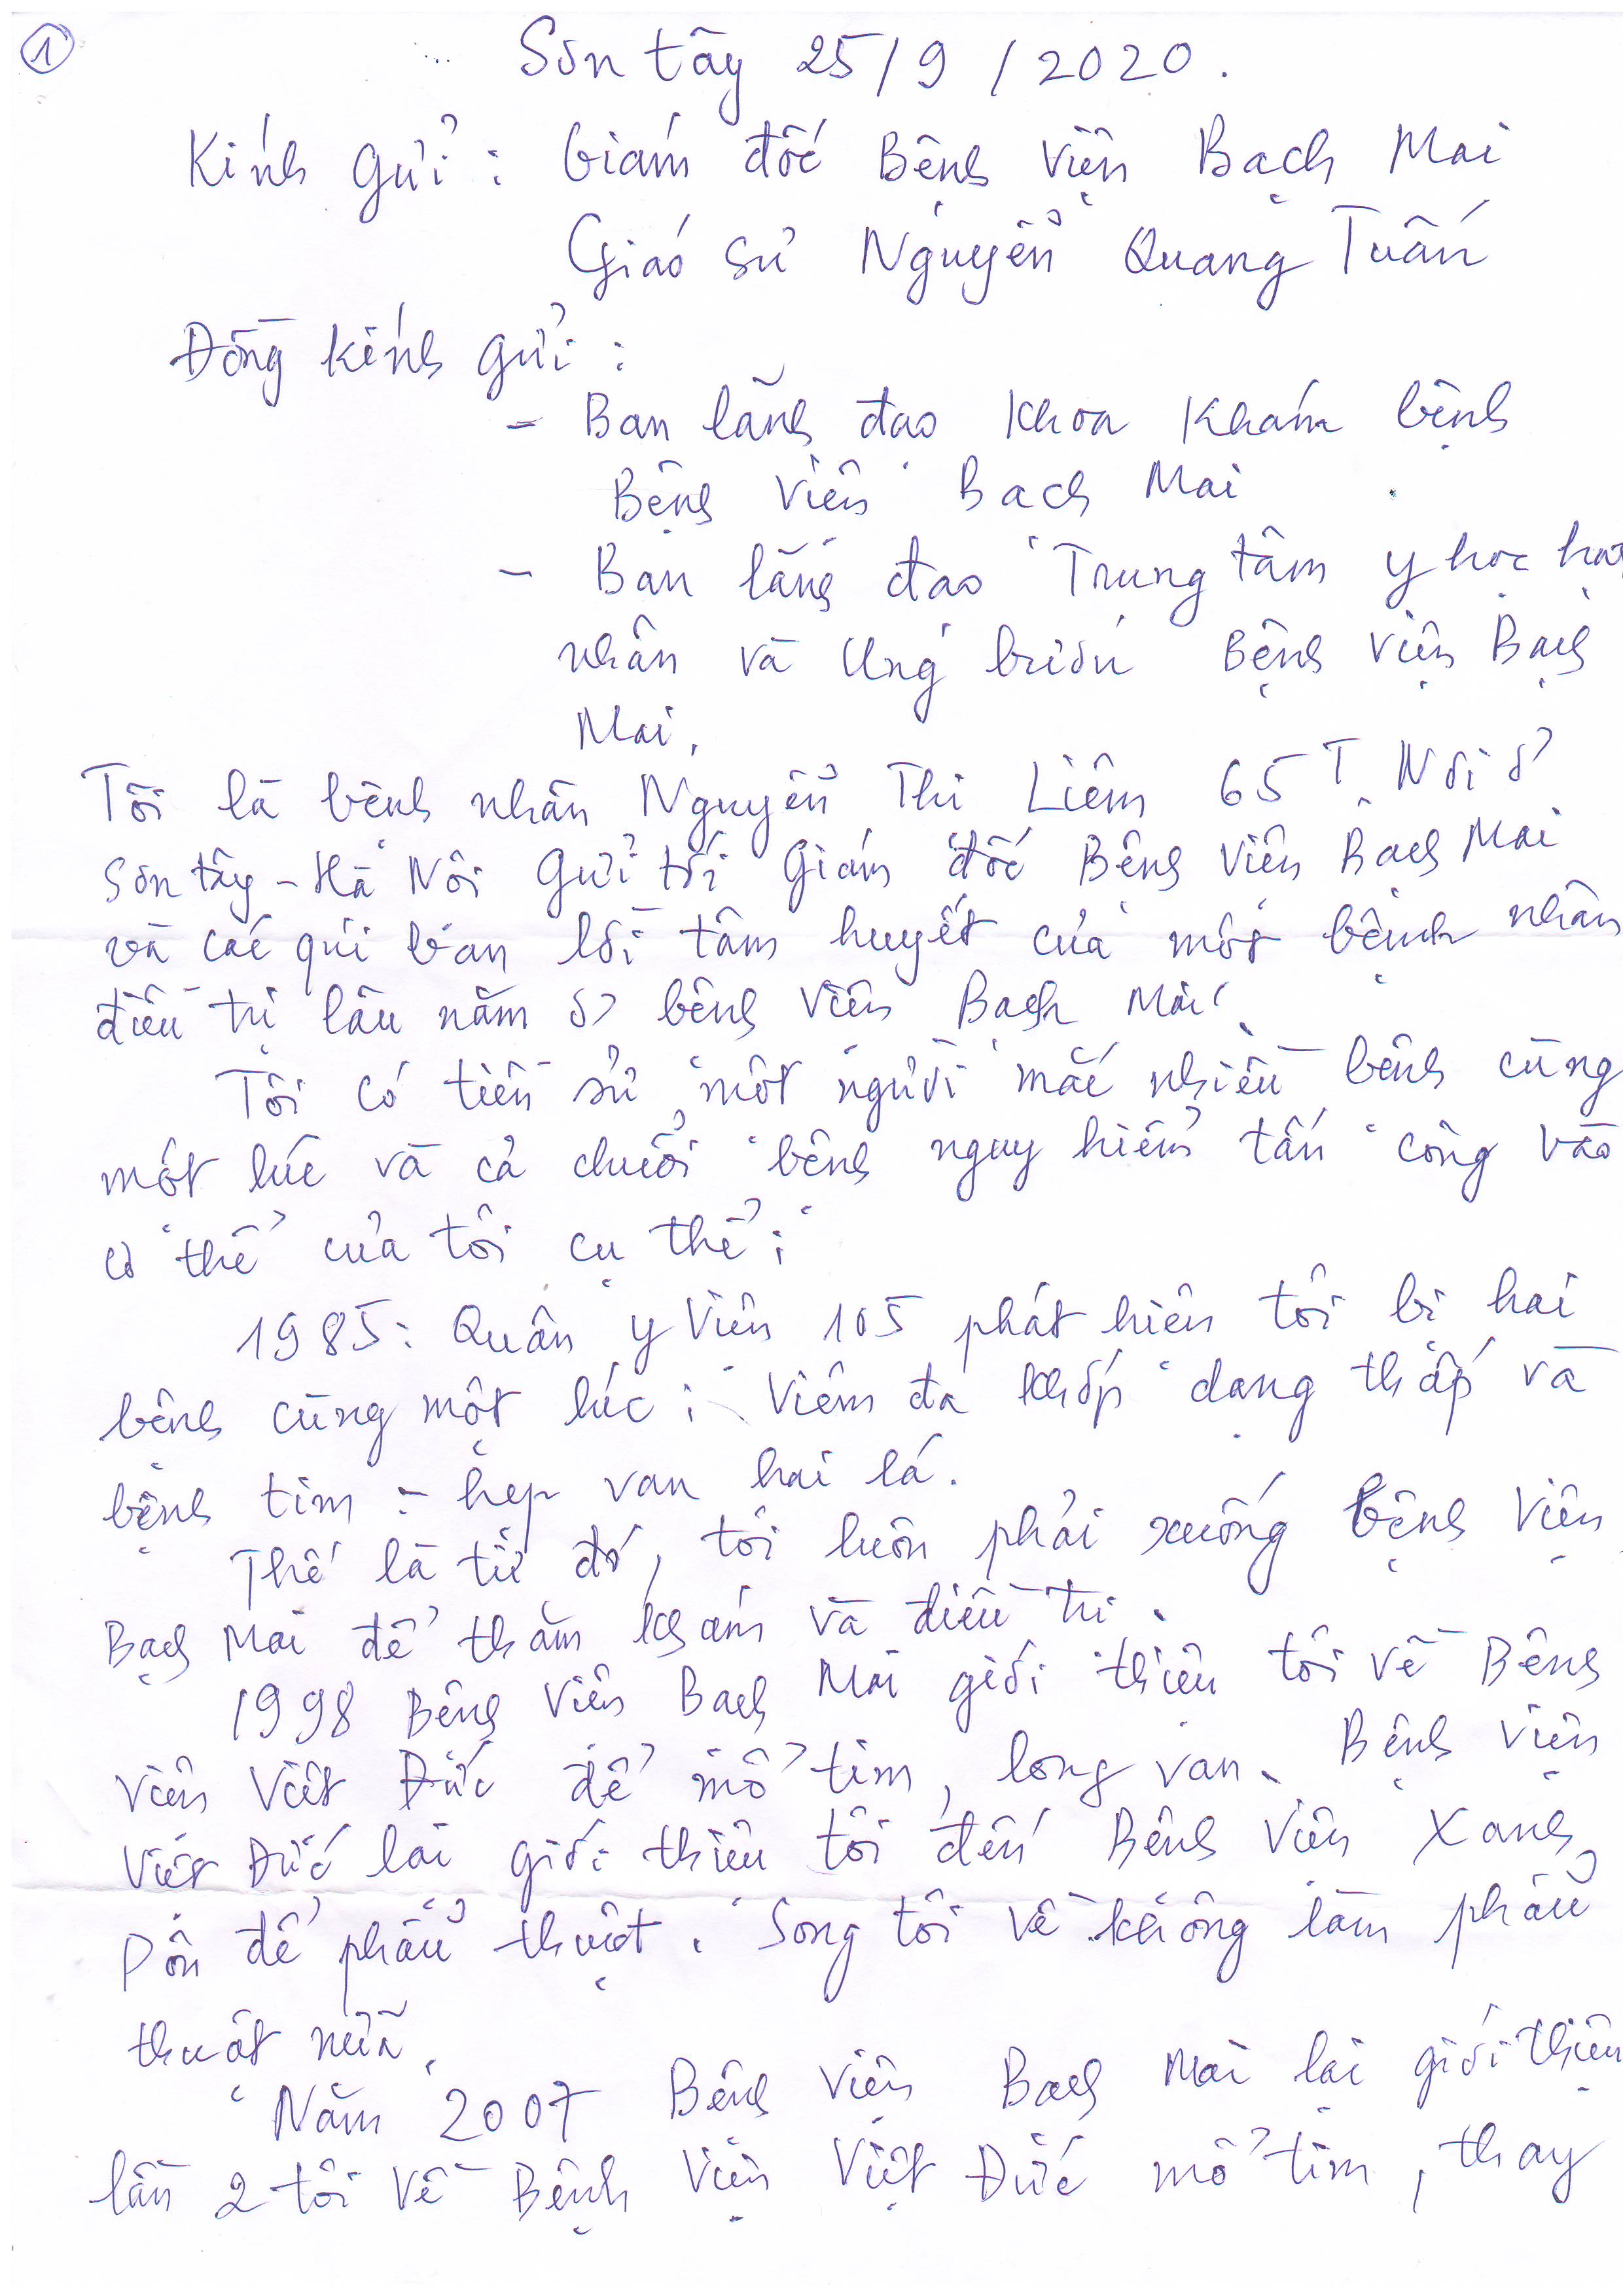 ①
Sơn tây 25/9/2020.
Kính gửi: Giám đốc Bệnh viện Bạch Mai
Giáo sư Nguyễn Quang Tuấn
Đồng kính gửi:
- Ban lãnh đạo khoa khám bệnh
Bệnh viện Bạch Mai
- Ban lãnh đạo Trung tâm y học hạt
nhân và Ung bướu Bệnh viện Bạch
Mai.
Tôi là bệnh nhân Nguyễn Thị Liêm 65T. Nơi ở
Sơn tây - Hà Nội Gửi tới Giám đốc Bệnh viện Bạch Mai
và các quí ban lời tâm huyết của một bệnh nhân
điều trị lâu năm ở bệnh viện Bạch Mai.
Tôi có tiền sử một người mắc nhiều bệnh cùng
một lúc và cả chuỗi bệnh nguy hiểm tấn công vào
cơ thể của tôi cụ thể:
1985: Quân y viện 105 phát hiện tôi bị hai
bệnh cùng một lúc: Viêm đa khớp dạng thấp và
bệnh tim - hẹp van hai lá.
Thế là từ đó, tôi luôn phải xuống bệnh viện
Bạch Mai để thăm khám và điều trị.
1998 Bệnh viện Bạch Mai giới thiệu tôi về Bệnh
viện Việt Đức để mổ tim, long van. Bệnh viện
Việt Đức lại giới thiệu tôi đến Bệnh viện Xanh
Pôn để phẫu thuật. Song tôi về không làm phẫu
thuật nữa.
Năm 2007 Bệnh viện Bạch Mai lại giới thiệu
lần 2 tôi về Bệnh viện Việt Đức mổ tim, thay